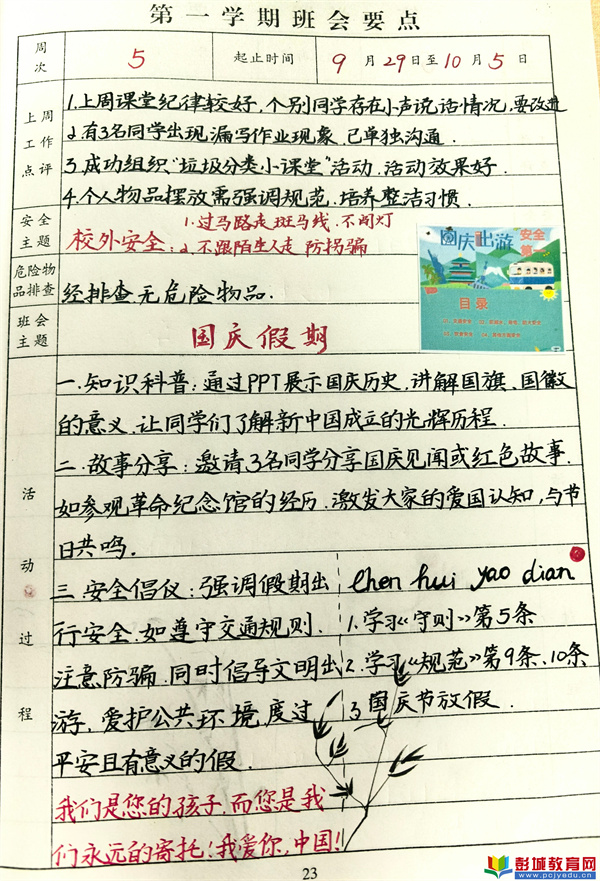 第一学期班会要点
周次 5 起止时间 9月29日至10月5日
上周工作点评
1.上周课堂纪律较好,个别同学存在小声说话情况,要改进
2.有3名同学出现漏写作业现象.已单独沟通.
3.成功组织“垃圾分类小课堂”活动.活动效果好.
4.个人物品摆放需强调规范.培养整洁习惯.
安全主题
校外安全:1.过马路走斑马线.不闯灯
2.不跟陌生人走 防拐骗
国庆出游 安全第一
目录
危险物品排查
经排查无危险物品.
班会主题
国庆假期
活动过程
一.知识科普:通过PPT展示国庆历史,讲解国旗、国徽
的意义.让同学们了解新中国成立的光辉历程.
二.故事分享:邀请3名同学分享国庆见闻或红色故事.
如参观革命纪念馆的经历.激发大家的爱国认知,与节
日共鸣.
三.安全倡仪:强调假期出
行安全.如遵守交通规则.
注意防骗.同时倡导文明出
游,爱护公共环境度过
平安且有意义的假.
我们是您的孩子,而您是我
们永远的寄托!我爱你,中国!
chen hui yao dian
1.学习《守则》第5条
2.学习《规范》第9条、10条
3.国庆节放假.
23
彭城教育网
www.pcjyedu.cn